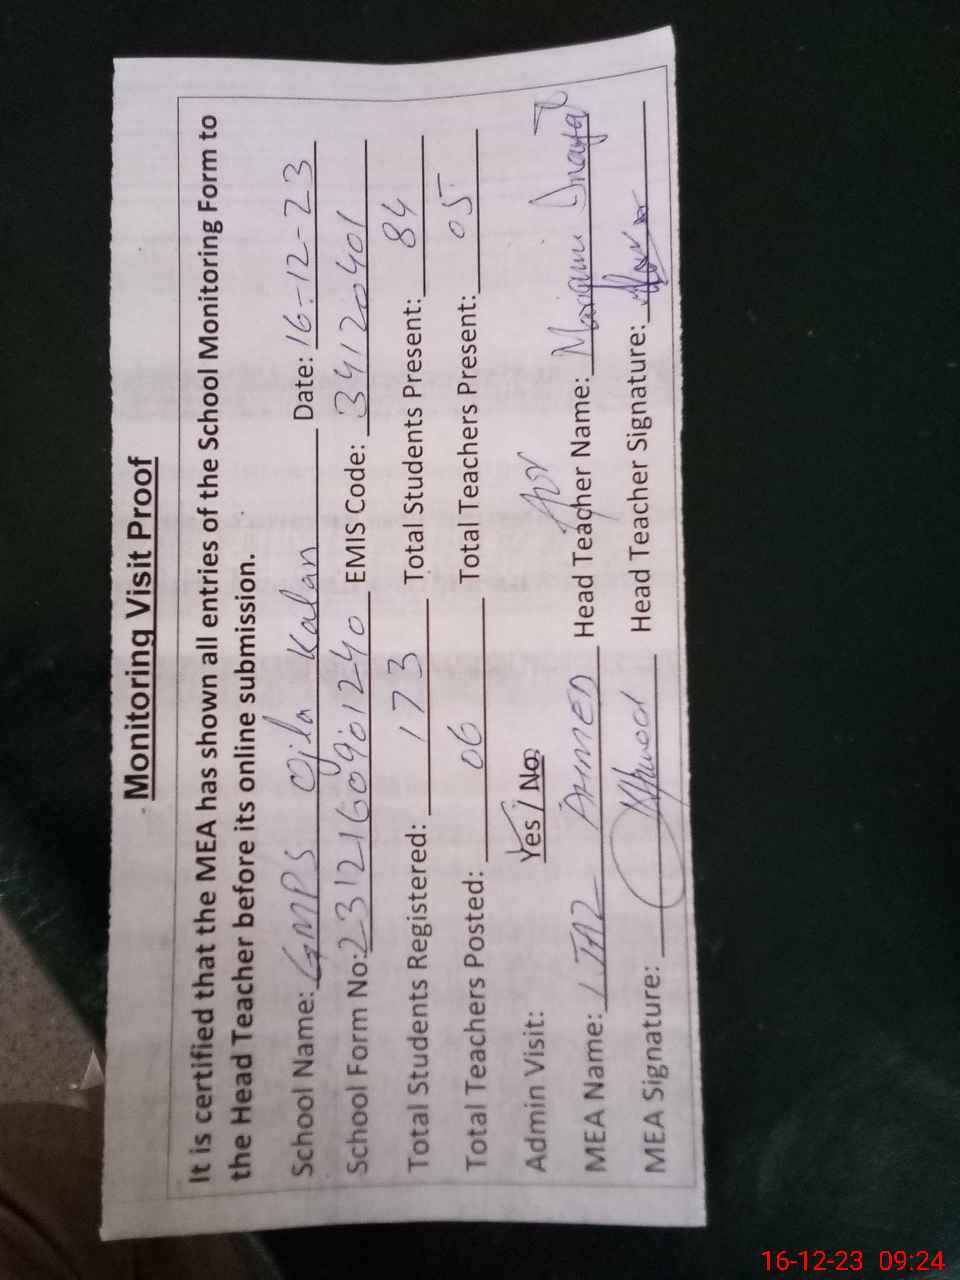 Monitoring Visit Proof
It is certified that the MEA has shown all entries of the School Monitoring Form to
the Head Teacher before its online submission.
School Name: GMPS Ojla Kalan Date: 16-12-23
School Form No: 2312160901240 EMIS Code: 34120401
Total Students Registered: 173 Total Students Present: 84
Total Teachers Posted: 06 Total Teachers Present: 05
Admin Visit: Yes / No
MEA Name: IJAZ AHMED Head Teacher Name: Maryam Inayat
MEA Signature: Head Teacher Signature:
16-12-23 09:24